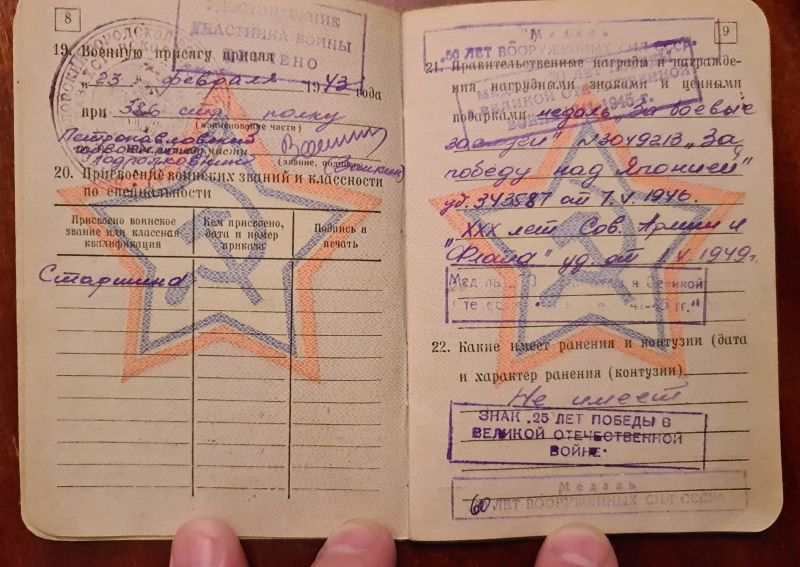 8
УДОСТОВЕРЕНИЕ
УЧАСТНИКА ВОЙНЫ
19. Военную присягу принял
23 февраля 1943 года
при 386 стр. полку
(наименование части)
Петропавловский
подполковник
(звание, подпись)
20. Присвоение воинских званий и классности
по специальности
Присвоено воинское
звание или классная
квалификация
Кем присвоено,
дата и номер
приказа
Подпись и
печать
Старшина
9
Медаль
„50 ЛЕТ ВООРУЖЕННЫХ СИЛ СССР"
21. Правительственные награды и награжде-
ния нагрудными знаками и ценными
ВЕЛИКОЙ ОТЕЧЕСТВЕННОЙ
подарками медаль „За боевые
заслуги" №3049213 „За
победу над Японией"
уд. 343587 от 7.V.1946.
„XXX лет Сов. Армии и
Флота" уд. от 1.V.1949г.
22. Какие имеет ранения и контузии (дата
и характер ранения (контузии)
Не имеет
ЗНАК „25 ЛЕТ ПОБЕДЫ В
ВЕЛИКОЙ ОТЕЧЕСТВЕННОЙ
ВОЙНЕ"
Медаль
60 ЛЕТ ВООРУЖЕННЫХ СИЛ СССР"